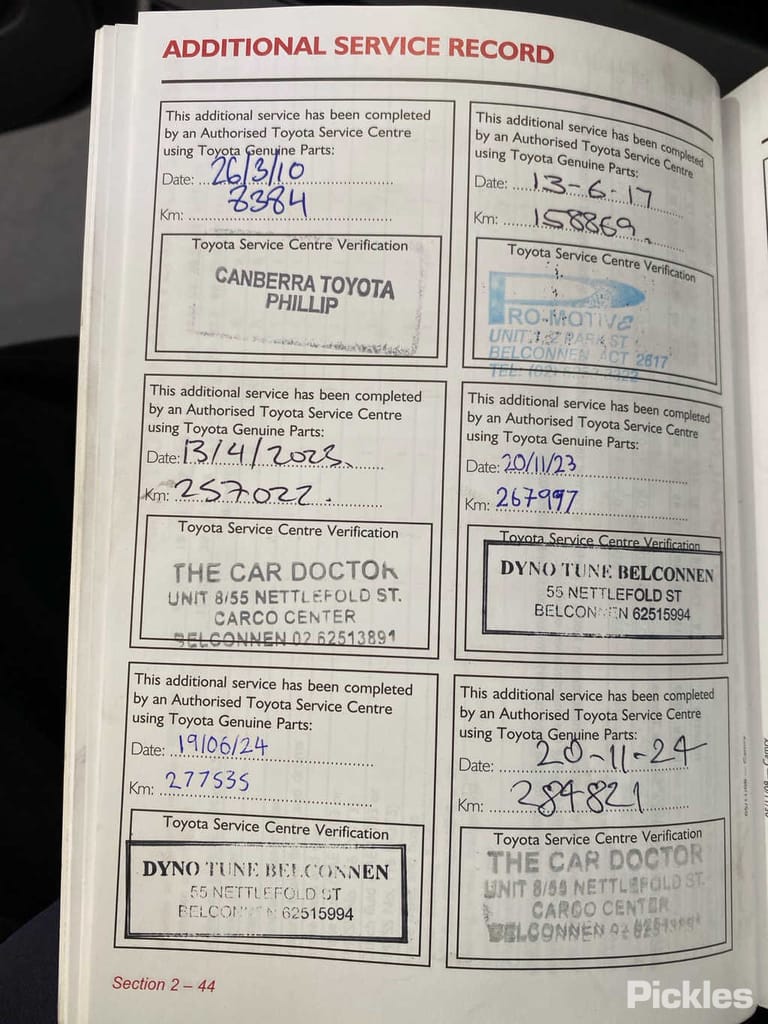 ADDITIONAL SERVICE RECORD
This additional service has been completed
by an Authorised Toyota Service Centre
using Toyota Genuine Parts:
Date: 26/3/10
Km: 8384
Toyota Service Centre Verification
CANBERRA TOYOTA
PHILLIP
This additional service has been completed
by an Authorised Toyota Service Centre
using Toyota Genuine Parts:
Date: 13-6-17
Km: 158869
Toyota Service Centre Verification
PRO-MOTIVE
PARK ST
BELCONNEN ACT 2617
TEL: (02)
This additional service has been completed
by an Authorised Toyota Service Centre
using Toyota Genuine Parts:
Date: 13/4/2023
Km: 257022.
Toyota Service Centre Verification
THE CAR DOCTOR
UNIT 8/55 NETTLEFOLD ST.
CARCO CENTER
BELCONNEN 02 62513891
This additional service has been completed
by an Authorised Toyota Service Centre
using Toyota Genuine Parts:
Date: 20/11/23
Km: 267997
Toyota Service Centre Verification
DYNO TUNE BELCONNEN
55 NETTLEFOLD ST
BELCONNEN 62515994
This additional service has been completed
by an Authorised Toyota Service Centre
using Toyota Genuine Parts:
Date: 19/06/24
Km: 277535
Toyota Service Centre Verification
DYNO TUNE BELCONNEN
55 NETTLEFOLD ST
BELCONNEN 62515994
This additional service has been completed
by an Authorised Toyota Service Centre
using Toyota Genuine Parts:
Date: 20-11-24
Km: 284821
Toyota Service Centre Verification
THE CAR DOCTOR
UNIT 8/55 NETTLEFOLD ST.
CARCO CENTER
BELCONNEN
Section 2 – 44
Pickles